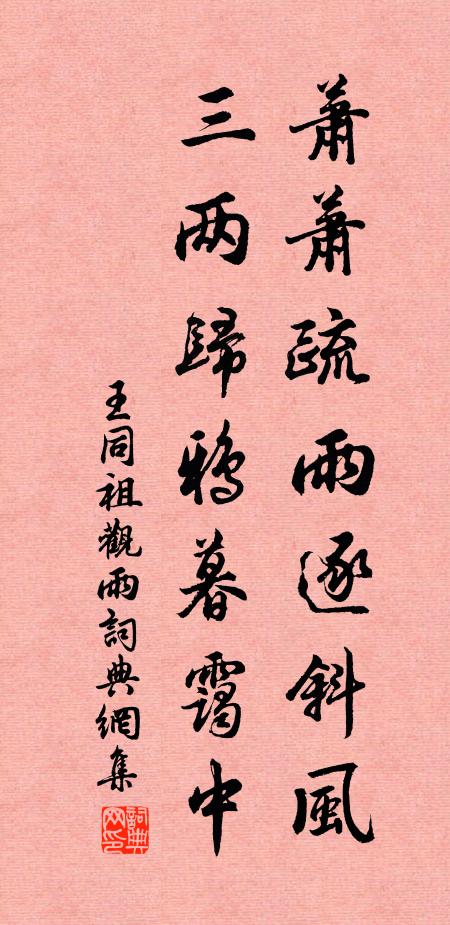 蕭蕭疏雨逐斜風
三两歸鴉暮靄中
王同祖觀雨詞典網集
詞典网印